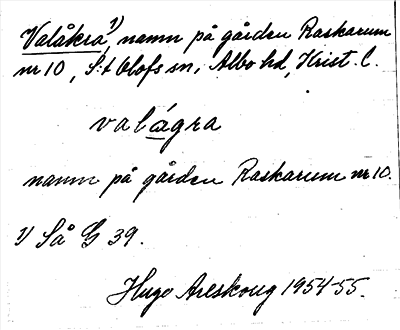 Valåkra ¹⁾, namn på gården Raskarum
nr 10, S:t Olofs sn, Albo hd, Krist. l.
valágra
namn på gården Raskarum nr 10.
1) Så G 39.
Hugo Areskoug 1954-55.